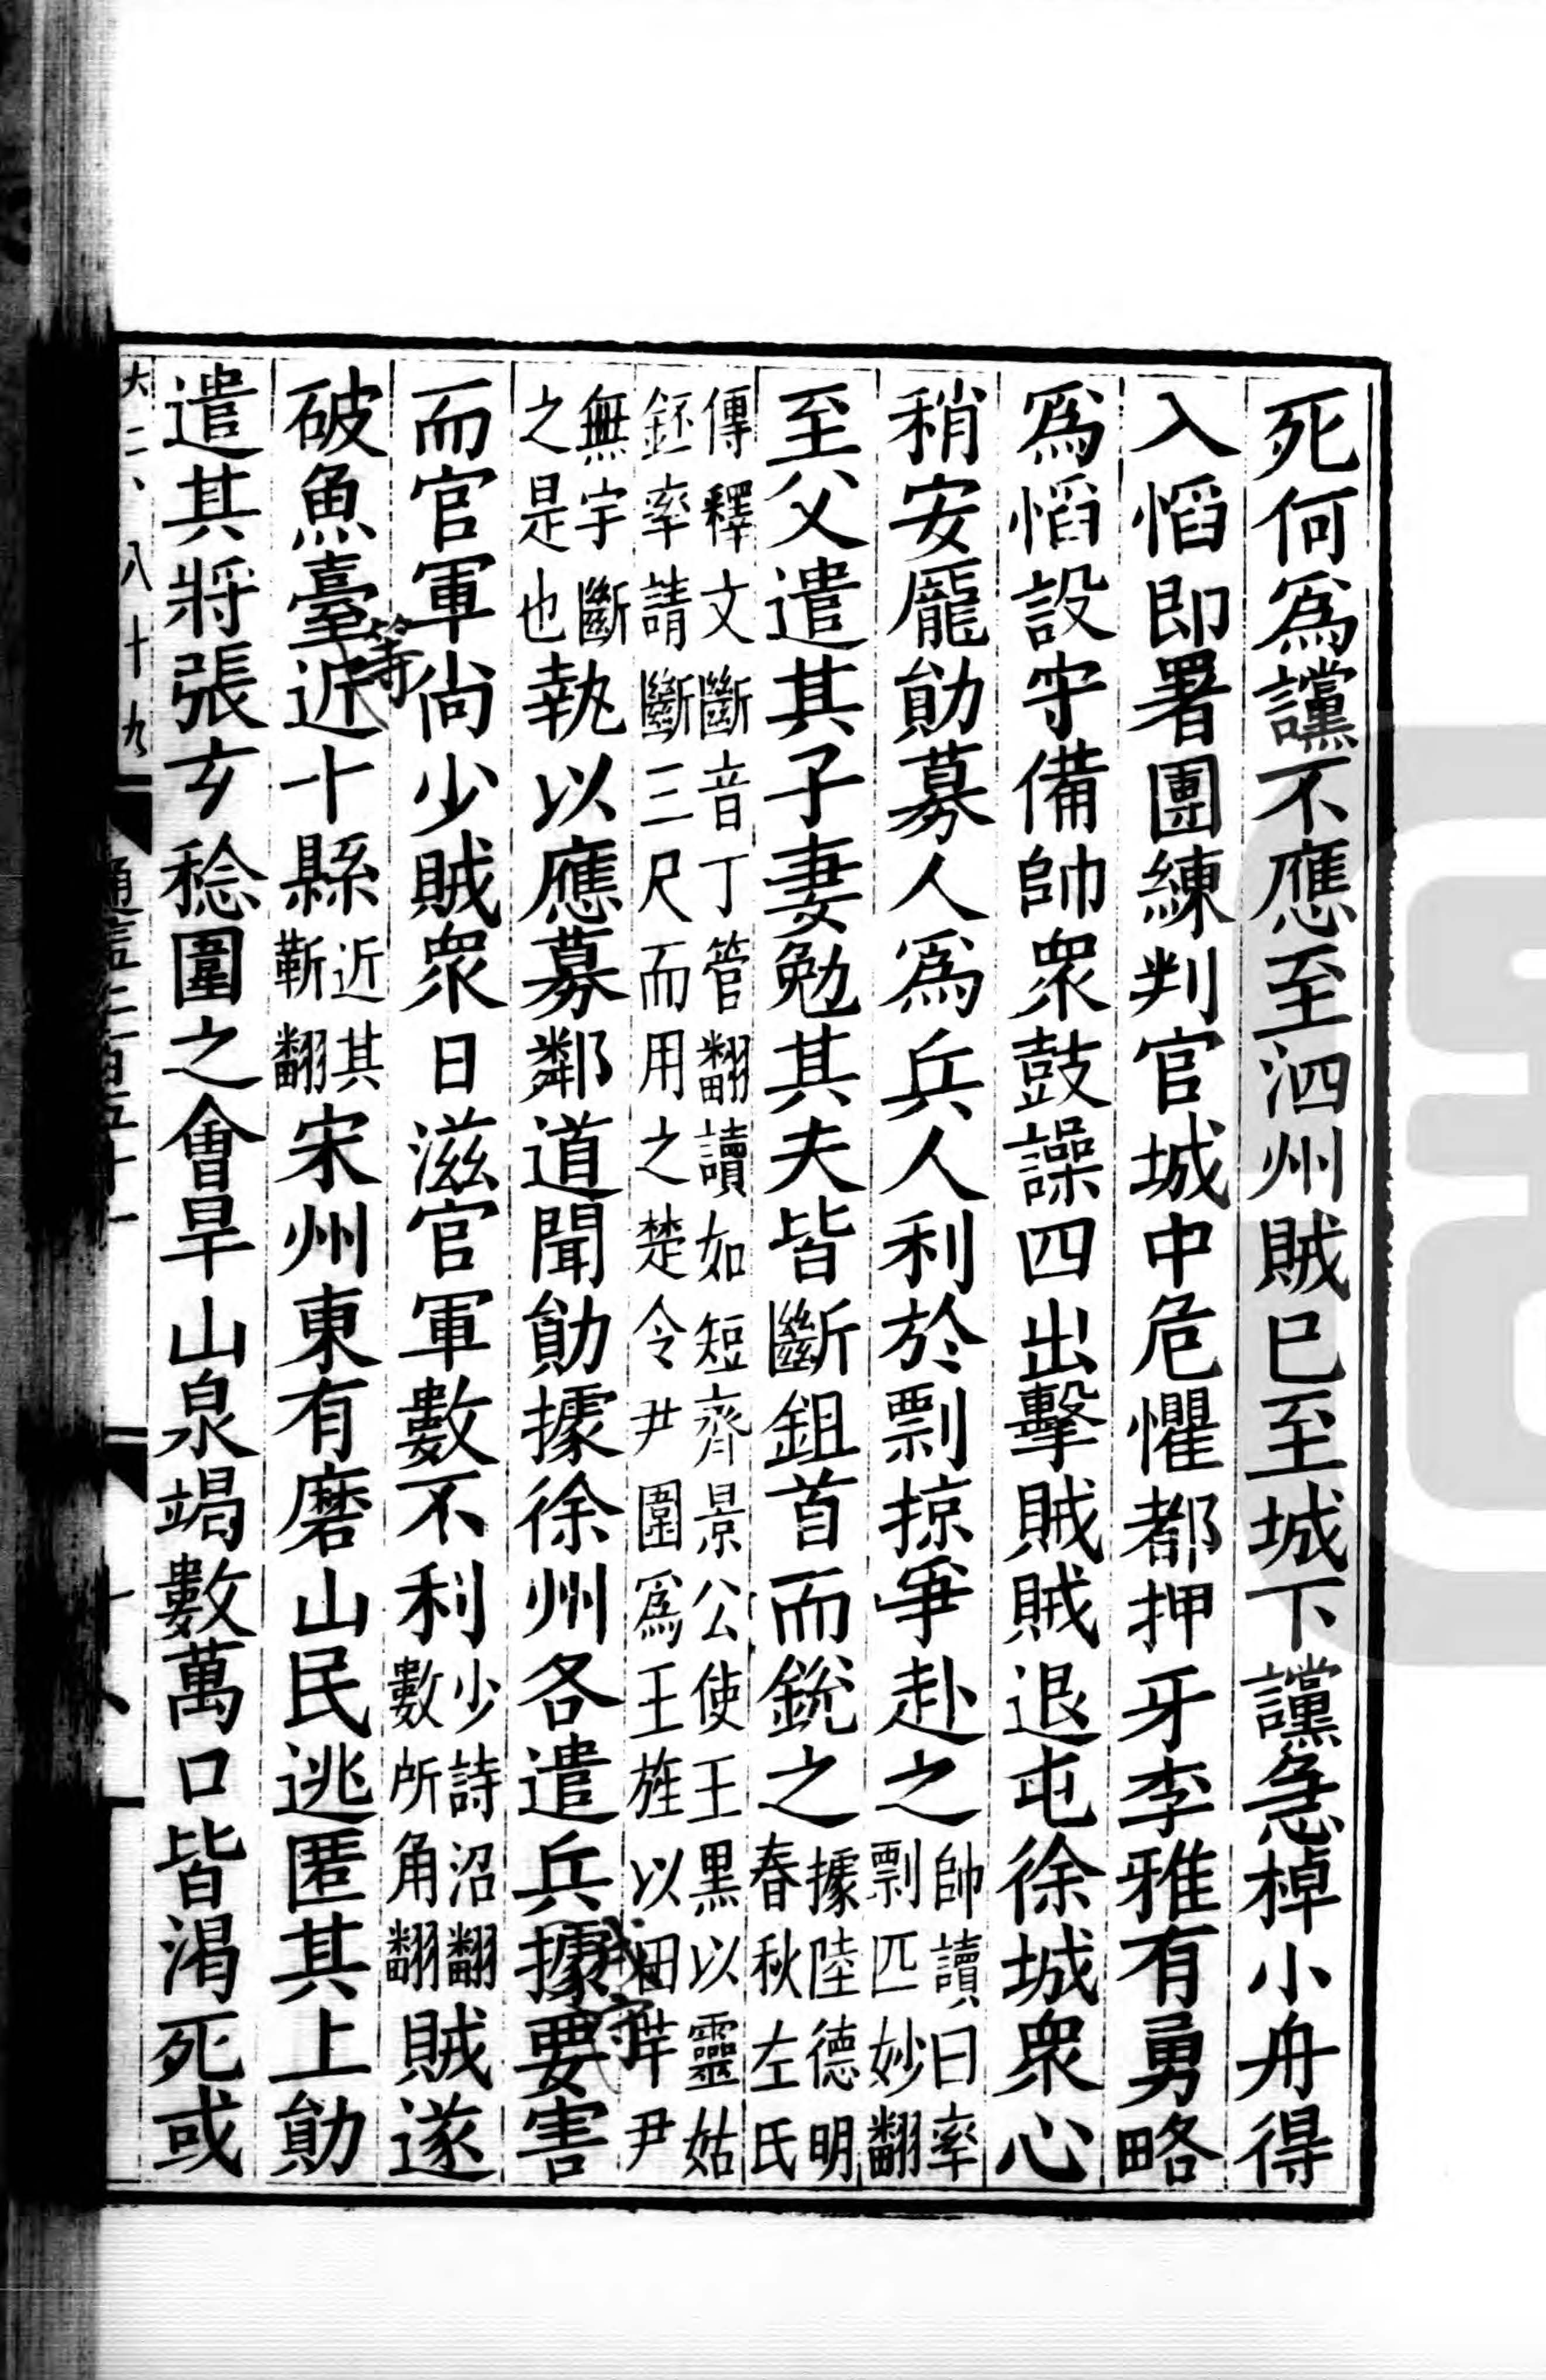 死何爲讜不應至泗州賊已至城下讜急棹小舟得
入慆即署團練判官城中危懼都押牙李雅有勇略
爲慆設守備帥衆鼓譟四出擊賊賊退屯徐城衆心
稍安龐勛募人爲兵人利於剽掠爭赴之帥讀曰率剽匹妙翻
至父遣其子妻勉其夫皆斷鉏首而銳之據陸德明春秋左氏
傳釋文斷音丁管翻讀如短齊景公使王黑以靈姑
銔率請斷三尺而用之楚令尹圍爲王旌以田芊尹
無宇斷之是也執以應募鄰道聞勛據徐州各遣兵據要害
而官軍尚少賊衆日滋官軍數不利少詩沼翻數所角翻賊遂
破魚臺等近十縣近其靳翻宋州東有磨山民逃匿其上勛
遣其將張玄稔圍之會旱山泉竭數萬口皆渴死或
大二、八十九